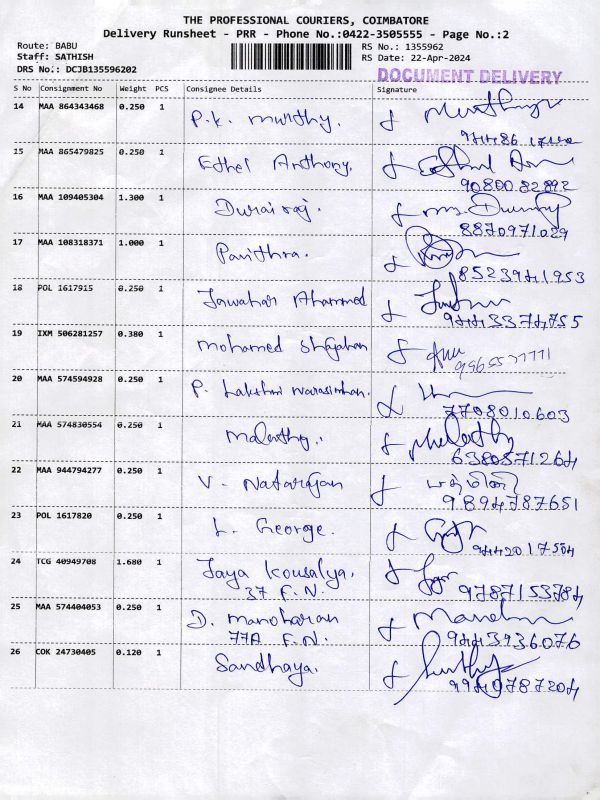 THE PROFESSIONAL COURIERS, COIMBATORE
Delivery Runsheet - PRR - Phone No.:0422-3505555 - Page No.:2
Route: BABU RS No.: 1355962
Staff: SATHISH RS Date: 22-Apr-2024
DRS No.: DCJB135596202 DOCUMENT DELIVERY
S No Consignment No Weight PCS Consignee Details Signature
14 MAA 864343468 0.250 1 P.K. Murthy.
15 MAA 865479825 0.250 1 Ethel Anthony.
90800 82892
16 MAA 109405304 1.300 1 Durairaj.
8870971029
17 MAA 108318371 1.000 1 Pavithra.
8523941953
18 POL 1617915 0.250 1 Jawahar Ahammed
9443374755
19 IXM 506281257 0.380 1 Mohamed Shajahan
20 MAA 574594928 0.250 1 P. Lakshmi Narasimhan.
7708010603
21 MAA 574830554 0.250 1 Malathy.
6380571264
22 MAA 944794277 0.250 1 V. Natarajan
9894787651
23 POL 1617820 0.250 1 L. George.
9442017504
24 TCG 40949708 1.680 1 Jaya Kousalya.
37 F.N. 9787153784
25 MAA 574404053 0.250 1 D. Manoharan
77A F.N. 9443936076
26 COK 24730405 0.120 1 Sandhaya.
9940787204